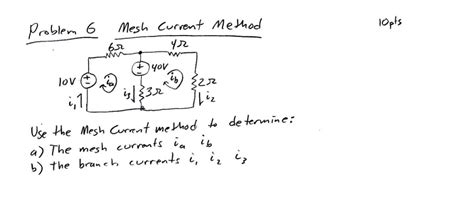 Problem 6 Mesh Current Method 10pts
6Ω 4Ω
40V
10V ia ib 2Ω
i1 i3 3Ω i2
Use the Mesh Current method to determine:
a) The mesh currents ia ib
b) The branch currents i1 i2 i3